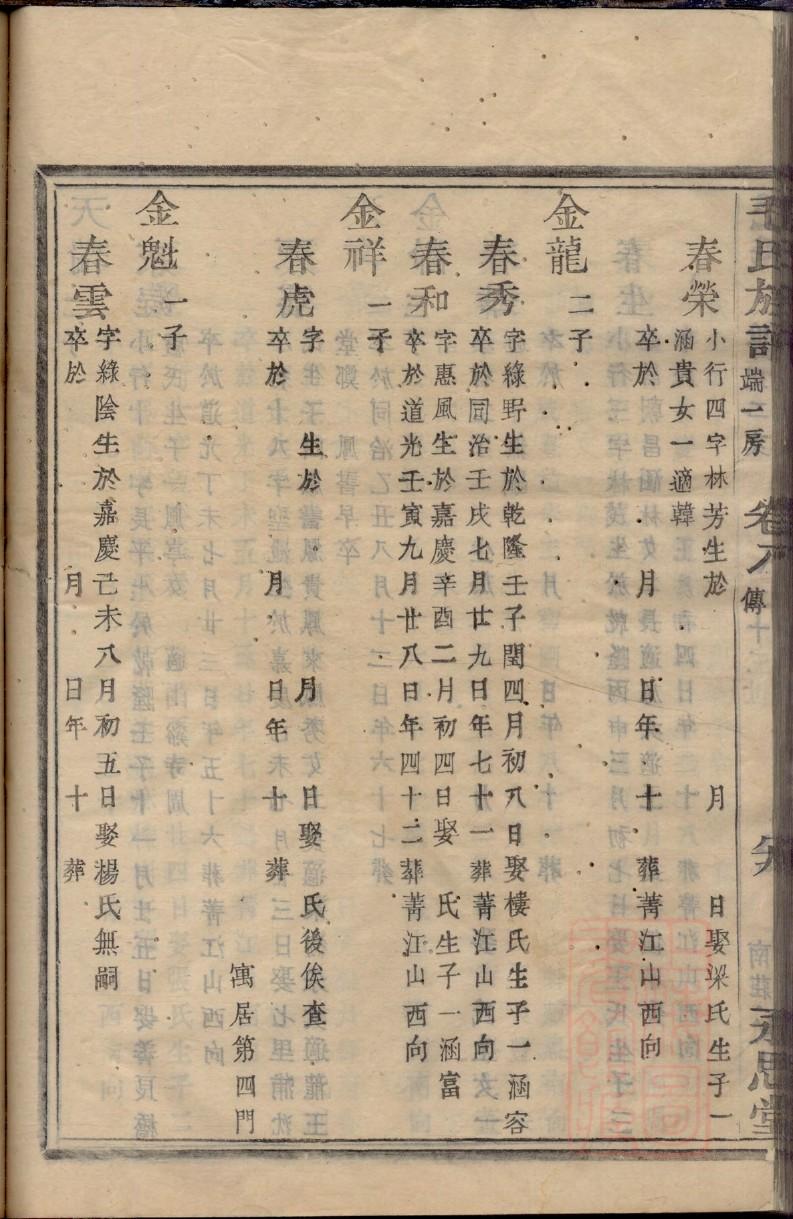 毛氏族譜 端一房 卷八 傳 南莊 永思堂
春榮
小行四字林芳生於 月 日娶梁氏生子一
涵貴女一適韓
卒於 月 日年 十 葬菁江山西向
金龍 二子
春秀
字綠野生於乾隆壬子閏四月初八日娶樓氏生子一涵容
卒於同治壬戌七月廿九日年七十一葬菁江山西向女一
春和
字惠風生於嘉慶辛酉二月初四日娶 氏生子一涵富
卒於道光壬寅九月廿八日年四十二葬菁江山西向
金祥 一子
春虎
字 生於 月 日娶 氏後俟查
卒於 月 日年 十 葬
寓居第四門
金魁 一子
春雲
字綠陰生於嘉慶己未八月初五日娶楊氏無嗣
卒於 月 日年 十 葬